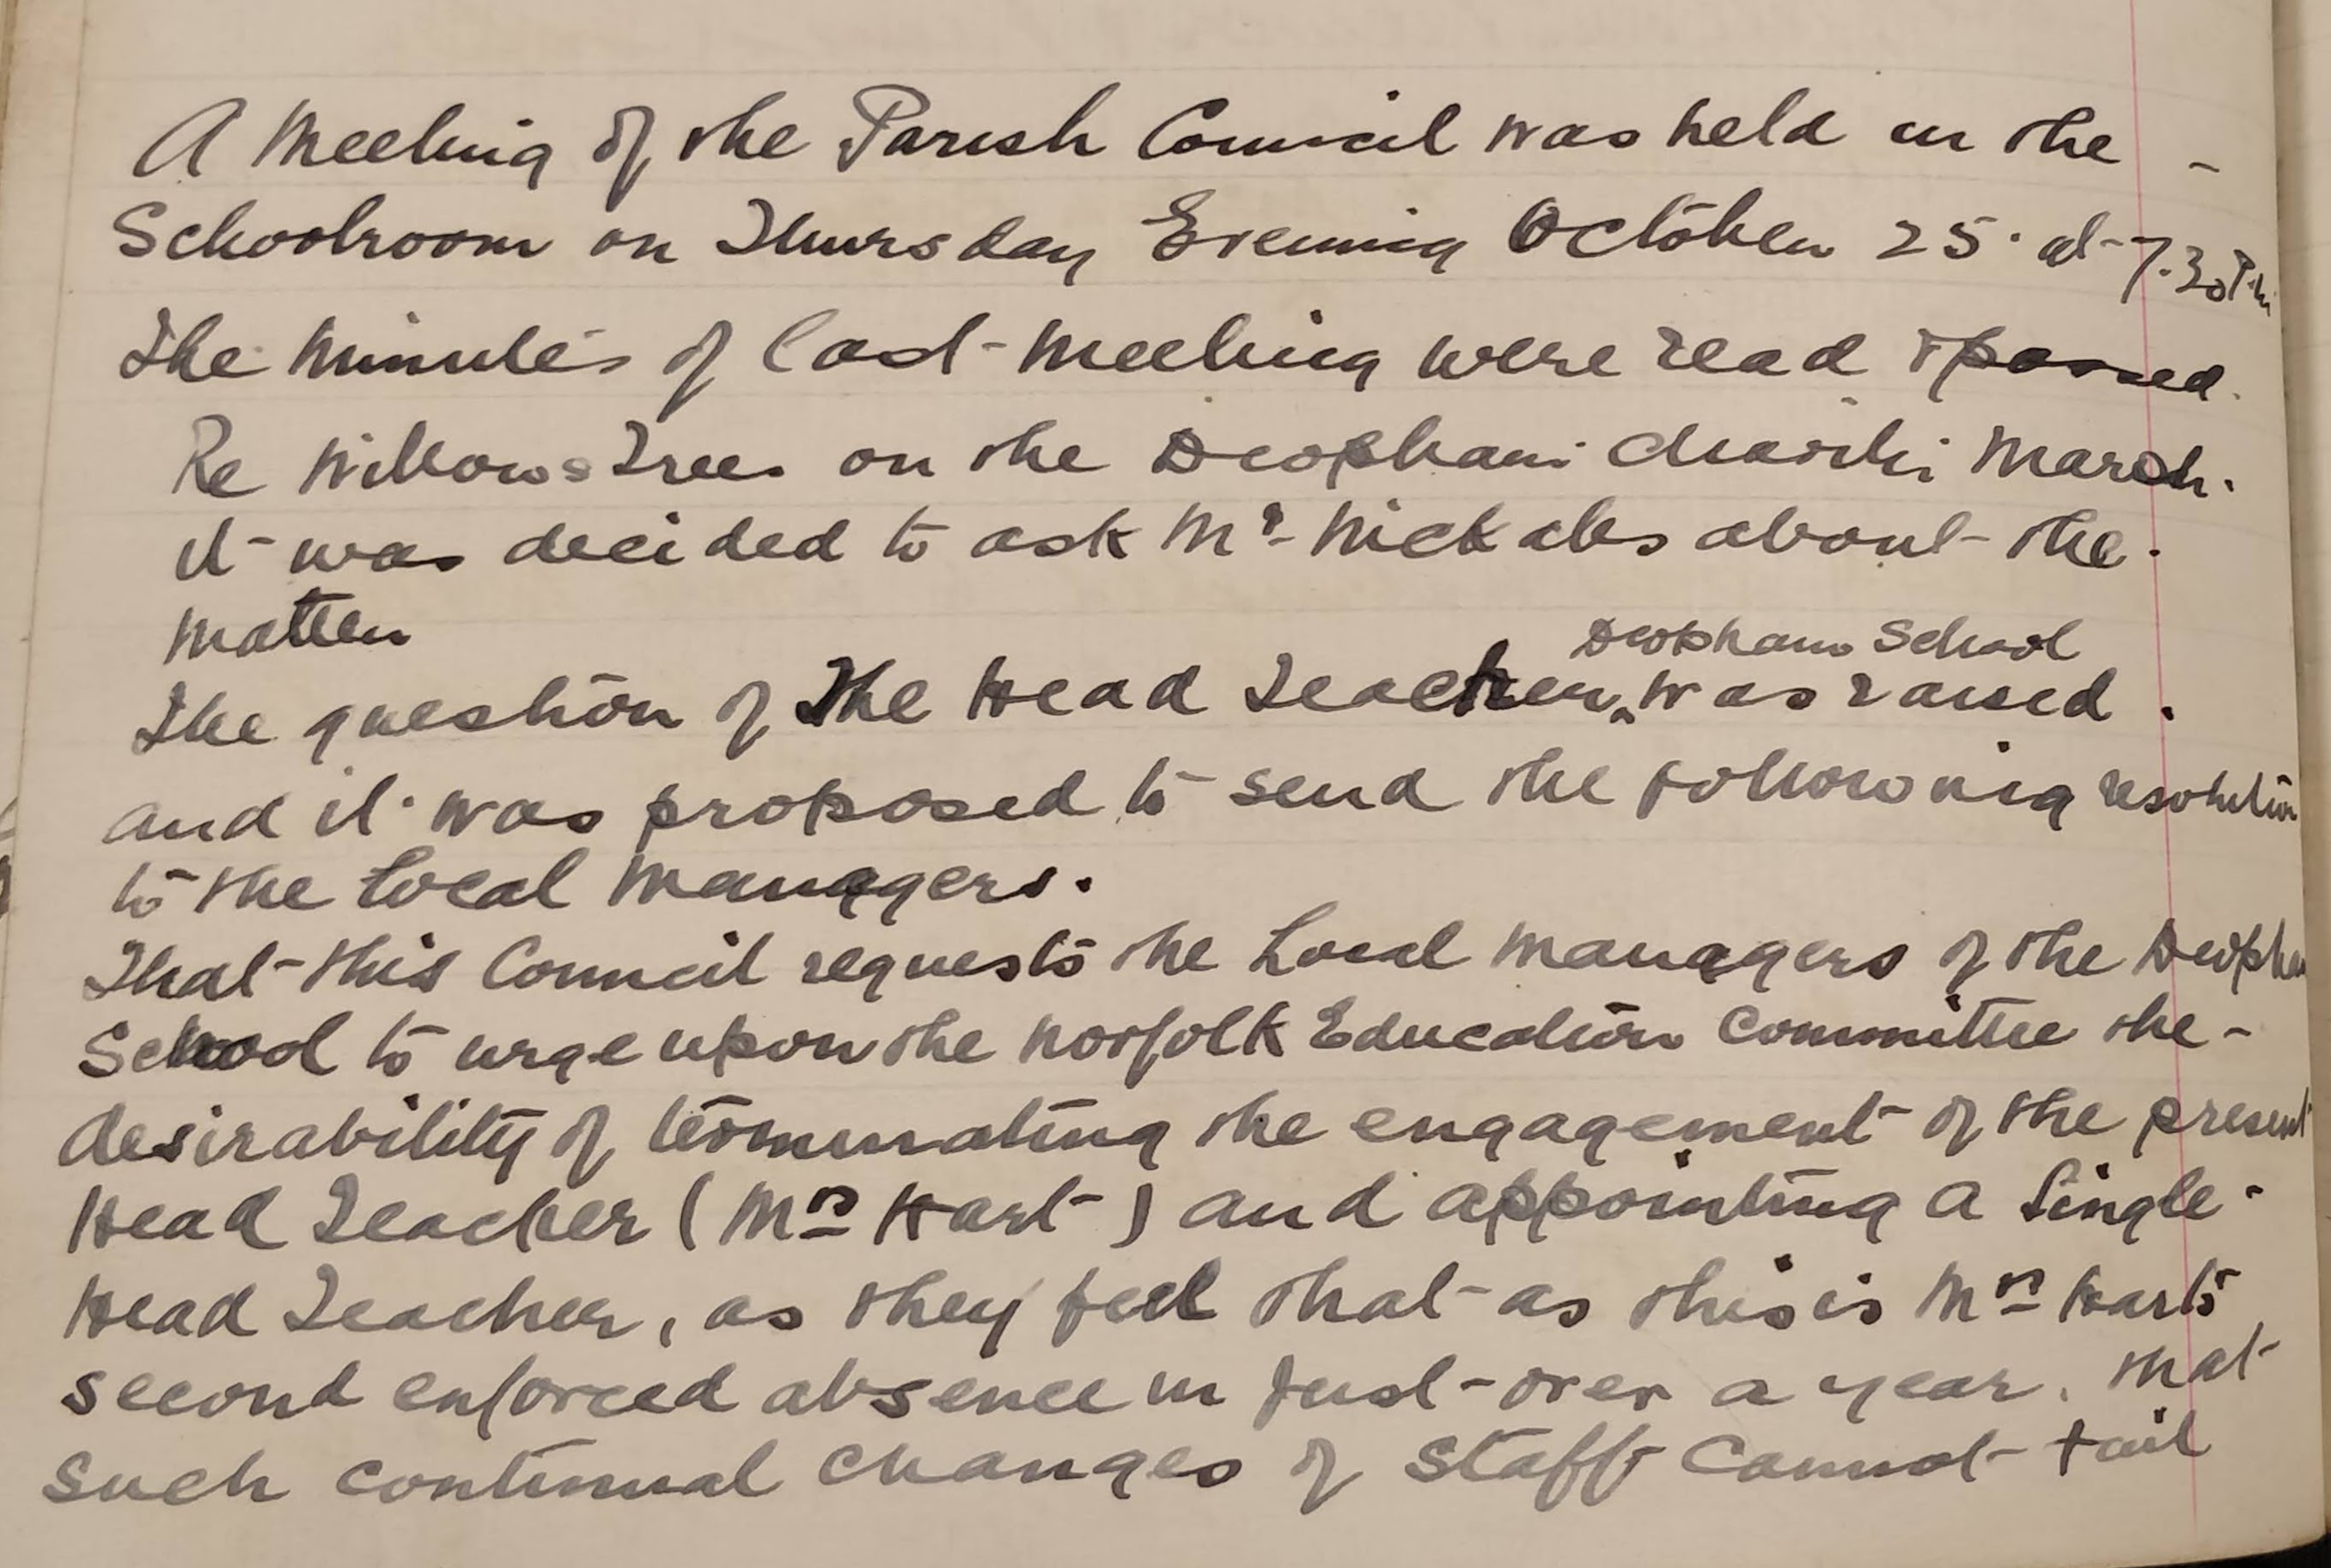 A Meeting of the Parish Council was held in the -
Schoolroom on Thursday Evening October 25. at 7.30 P.m
The Minutes of last meeting were read & passed.
Re Willows Trees on the Deopham Charity Marsh.
it was decided to ask Mr Nickalls about the.
matter
Deopham School
The question of the Head Teacher ^ was raised.
and it was proposed to send the following resolution
to the Local Managers.
That this Council requests the Local Managers of the Deopham
School to urge upon the Norfolk Education Committee the -
desirability of terminating the engagement of the present
Head Teacher (Mrs Hart) and appointing a Single -
Head Teacher, as they feel that as this is Mrs Harts
second enforced absence in just over a year. that
such continual changes of staff cannot fail